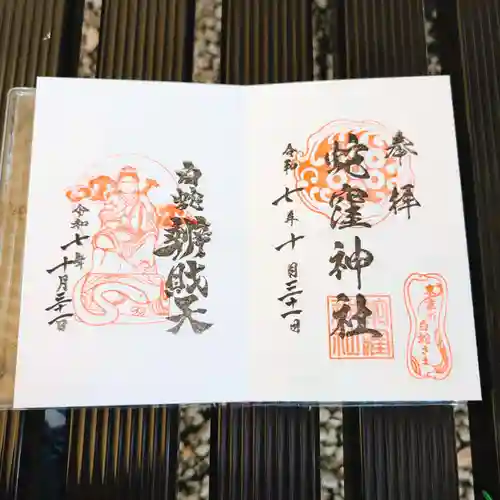 奉拝
蛇窪神社
令和七年十月三十一日
白蛇さま
白蛇辨財天
令和七年十月三十一日